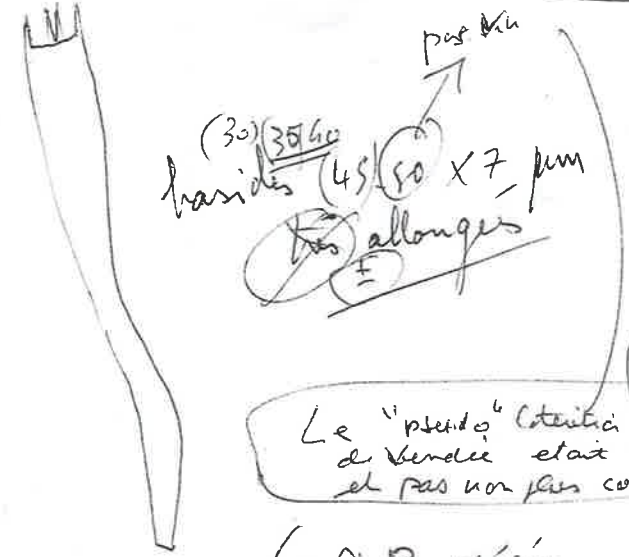 pas vu
(30) 35/40
basides (45) 50 X 7 µm
Très allongés
±
Le "pseudo"
de Vendée était
et pas non plus co